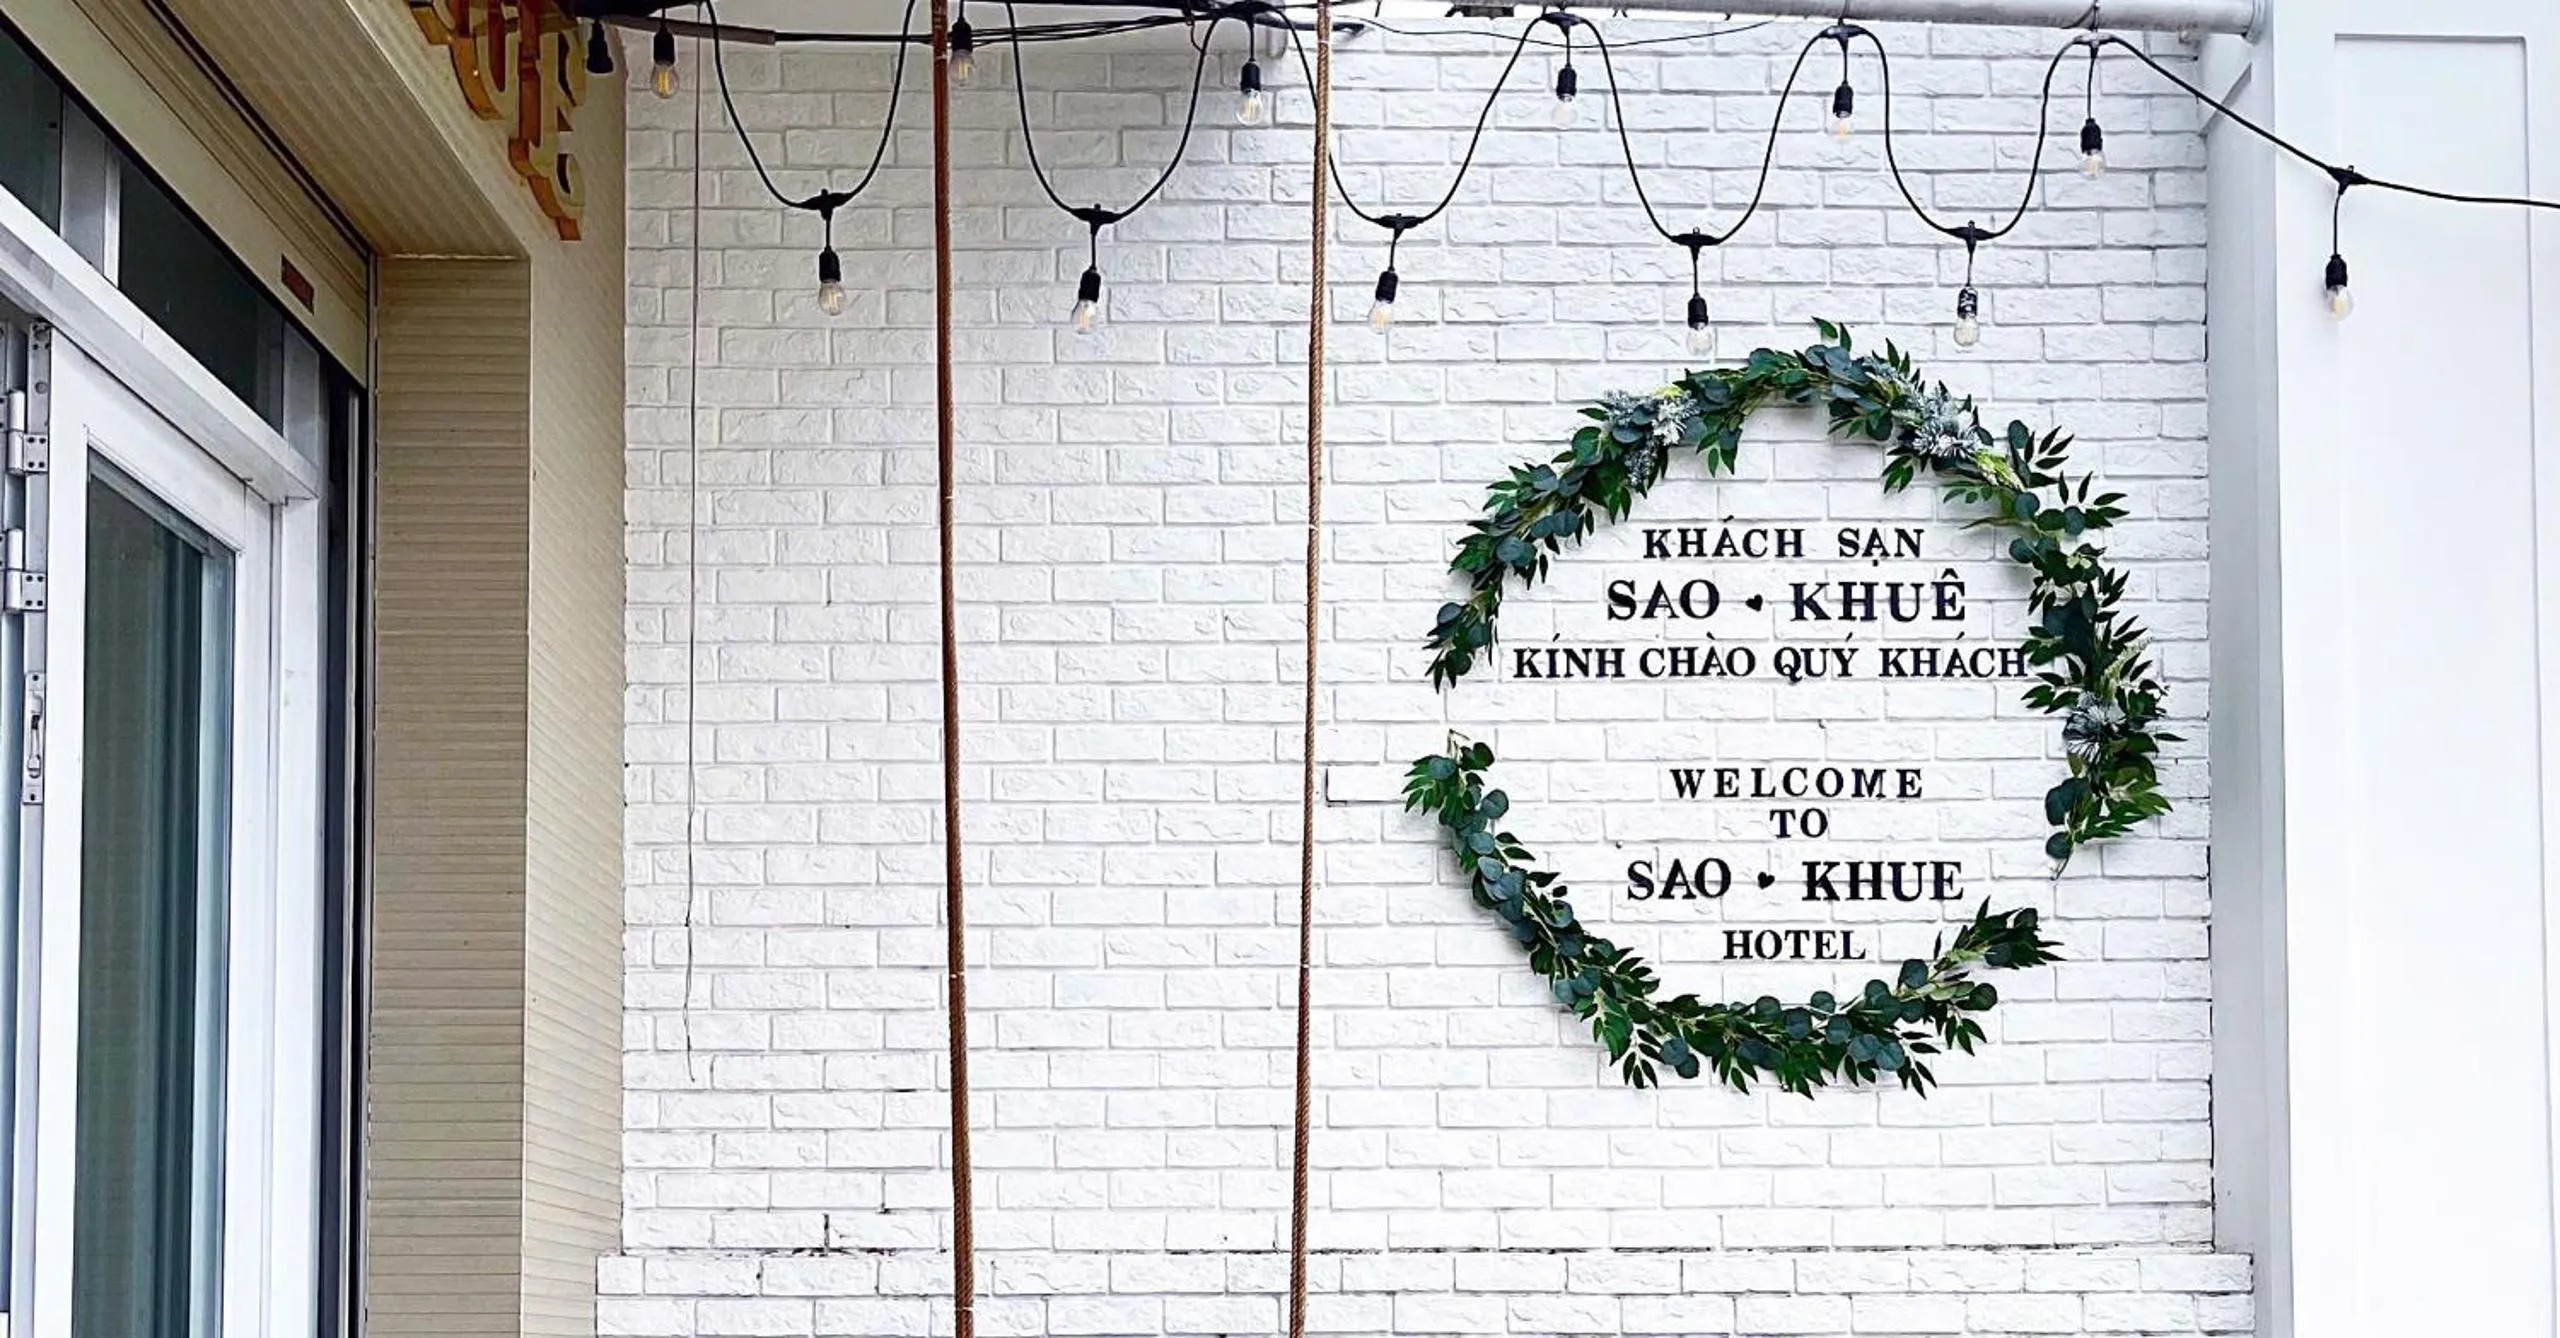 KHÁCH SẠN
SAO KHUÊ
KÍNH CHÀO QUÝ KHÁCH
WELCOME
TO
SAO KHUE
HOTEL